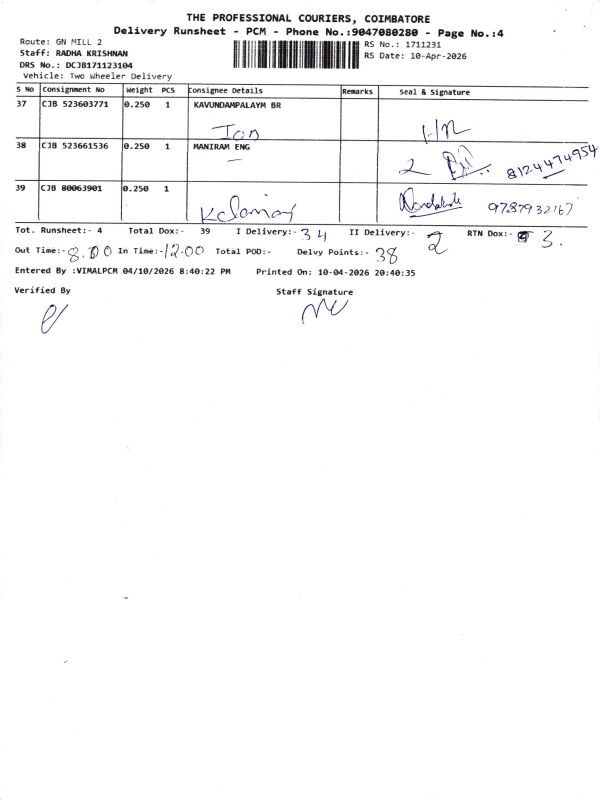 THE PROFESSIONAL COURIERS, COIMBATORE
Delivery Runsheet - PCM - Phone No.:9047080280 - Page No.:4
Route: GN MILL 2
Staff: RADHA KRISHNAN
DRS No.: DCJB171123104
Vehicle: Two Wheeler Delivery
RS No.: 1711231
RS Date: 10-Apr-2026
S No Consignment No Weight PCS Consignee Details Remarks Seal & Signature
37 CJB 523603771 0.250 1 KAVUNDAMPALAYM BR
38 CJB 523661536 0.250 1 MANIRAM ENG
2 8124474954
39 CJB 80063901 0.250 1
9787932167
Tot. Runsheet:- 4 Total Dox:- 39 I Delivery:- 34 II Delivery:- 2 RTN Dox:- 3.
Out Time:- 8.00 In Time:- 12.00 Total POD:- Delvy Points:- 38
Entered By :VIMALPCM 04/10/2026 8:40:22 PM Printed On: 10-04-2026 20:40:35
Verified By Staff Signature